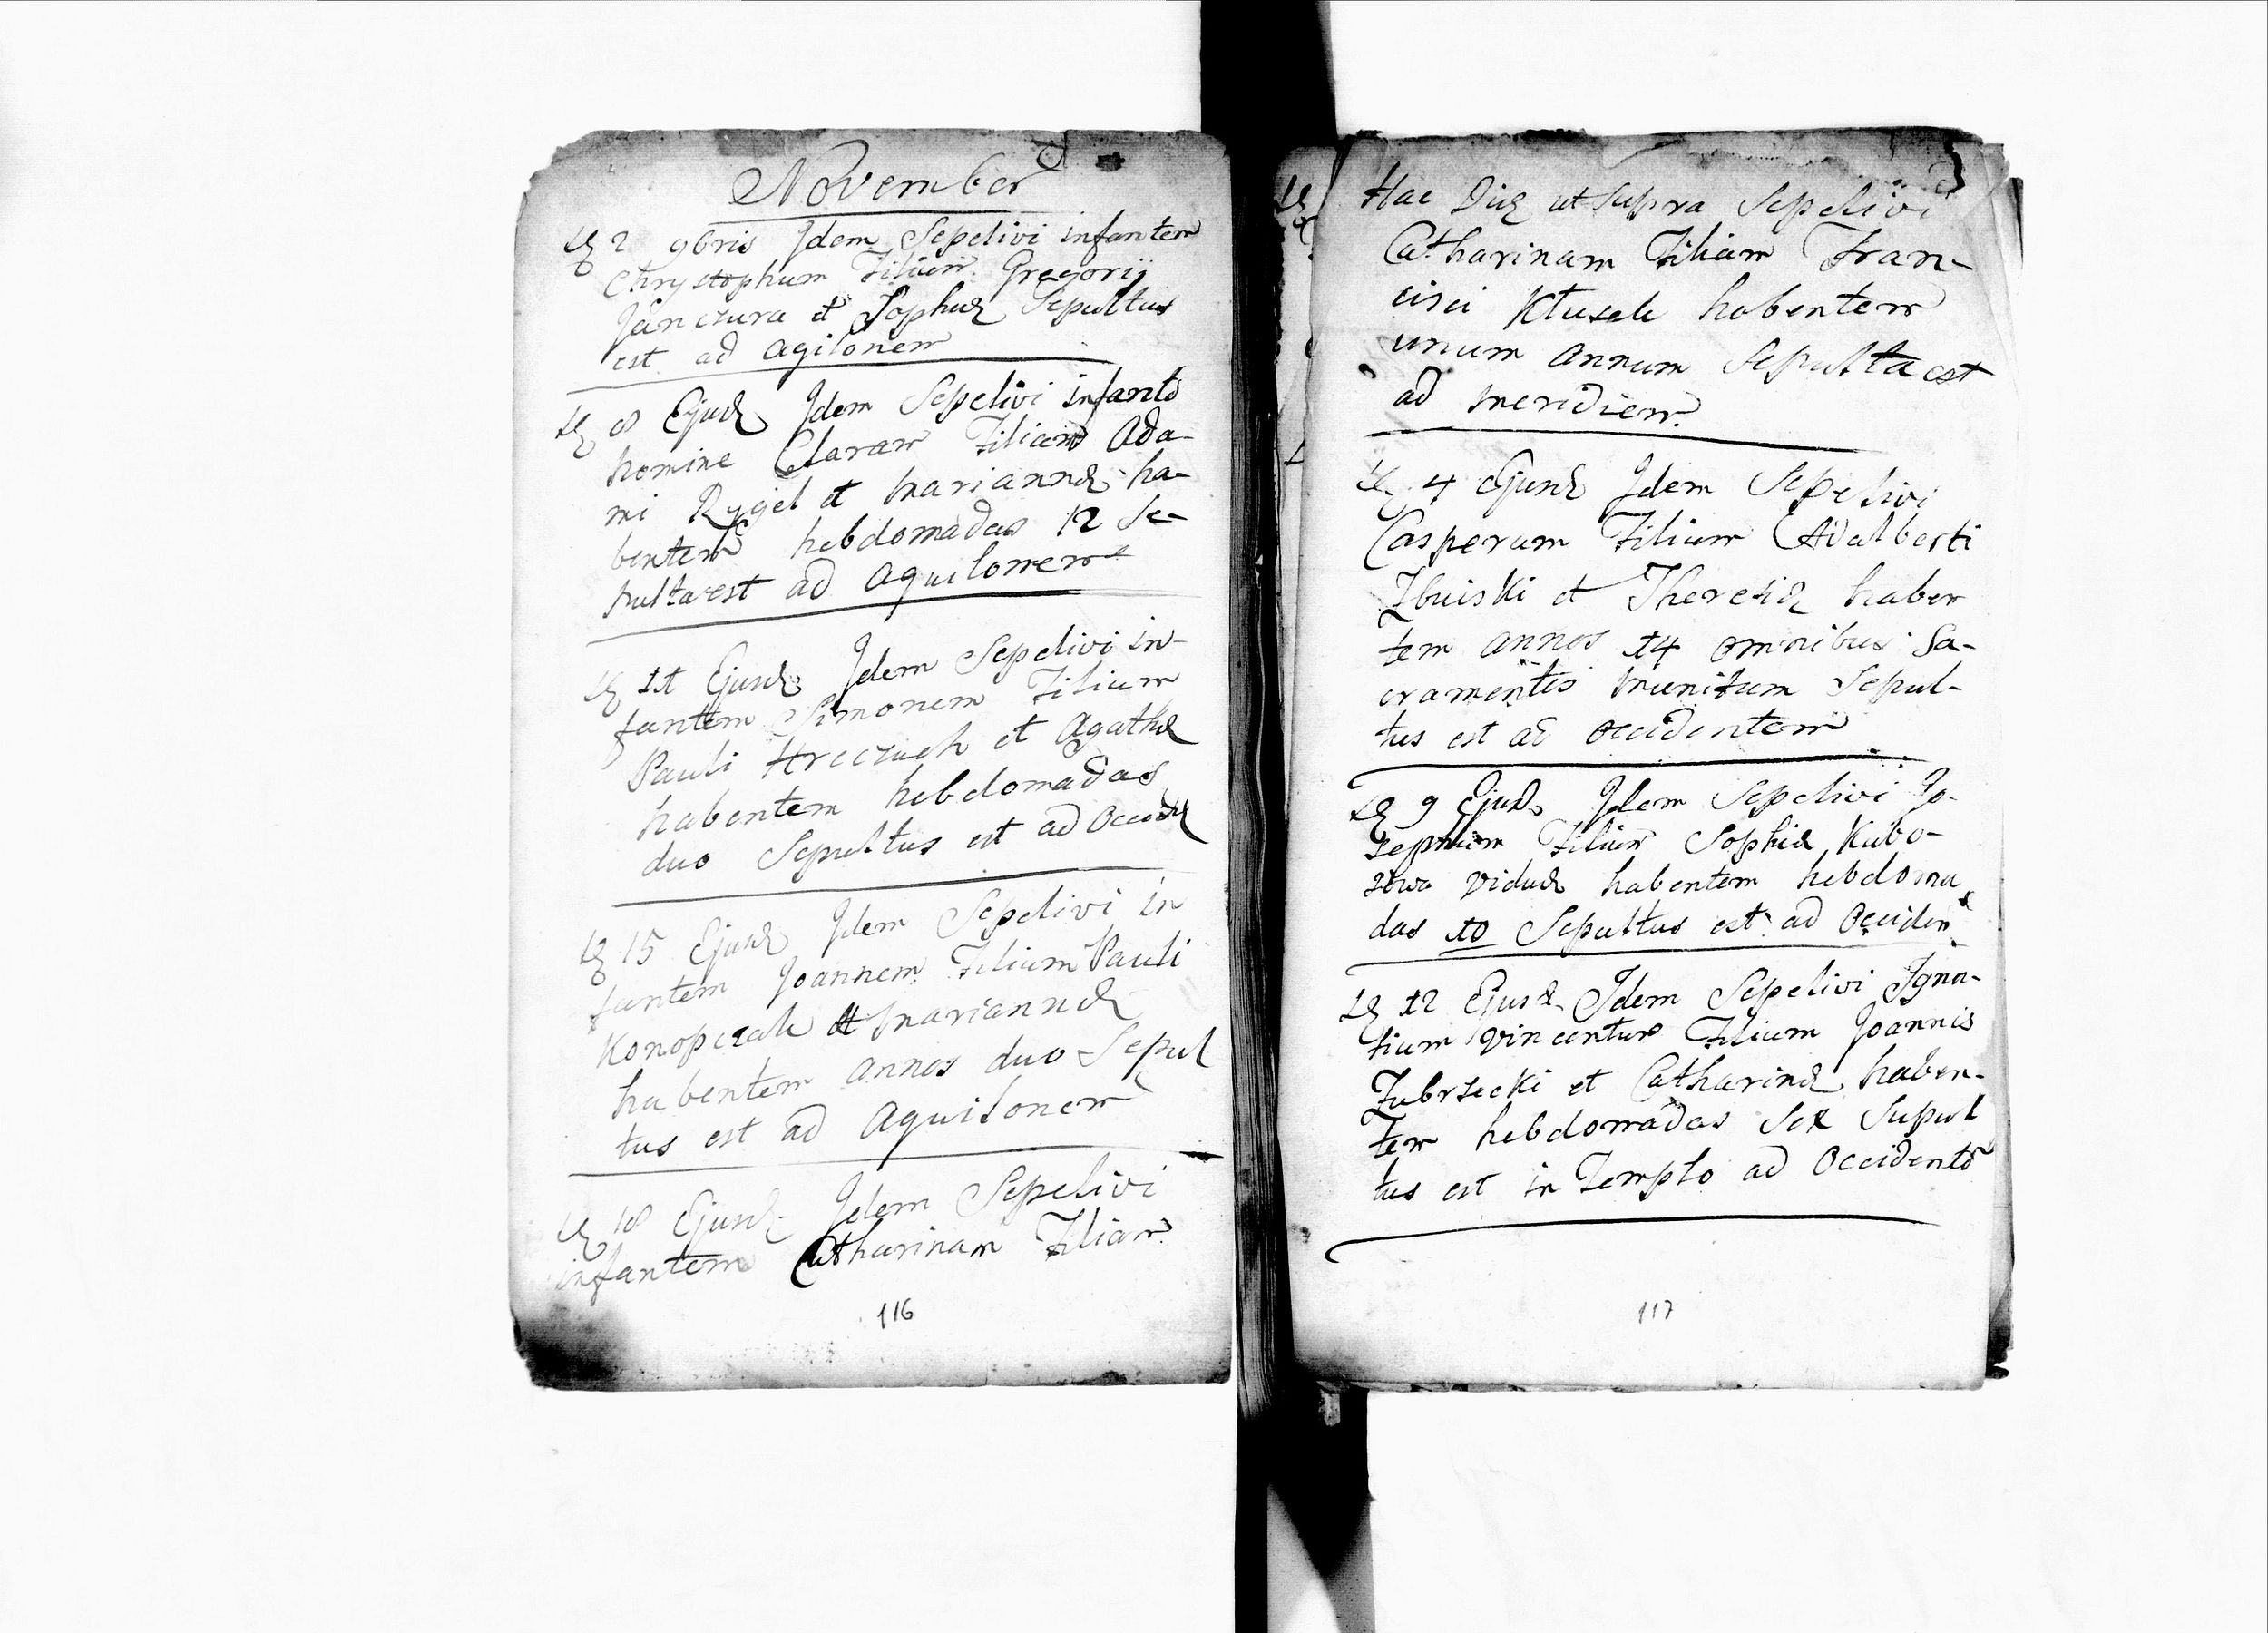 November
2 9bris Idem Sepelivi infantem
Chrystophum Filium Gregorij
Janczura et Sophiæ Sepultus
est ad Agilonem
8 Ejusd Idem Sepelivi infante
nomine Claram Filiam Ada-
mi Rygel et Mariannæ ha-
bentem hebdomadas 12 Se-
pulta est ad Aquilonem
11 Ejusd Idem Sepelivi in-
fantem Simonem Filium
Pauli Hreczuch et Agathæ
habentem hebdomadas
duo Sepultus est ad Occid
15 Ejusd Idem Sepelivi in
fantem Joannem Filium Pauli
Konopczak et Mariannæ
habentem annos duo Sepul
tus est ad Aquilonem
18 Ejusd Idem Sepelivi
infantem Catharinam Filiam
116
Hac Die ut Supra Sepelivi
Catharinam Filiam Fran-
cisci habentem
unum annum Sepulta est
ad meridiem
4 Ejusd Idem Sepelivi
Casperum Filium Adalberti
et Theresiæ haben
tem annos 14 omnibus Sa-
cramentis munitum Sepul-
tus est ad occidentem
9 Ejusd Idem Sepelivi Jo-
sephum Filium Sophiæ Kubo-
viduæ habentem hebdoma
das 10 Sepultus est ad Occiden
12 Ejusd Idem Sepelivi Igna-
tium Vincentum Filium Joannis
Zubrzecki et Catharinæ haben-
tem hebdomadas Sex Supul
tus est in Templo ad Occidente
117